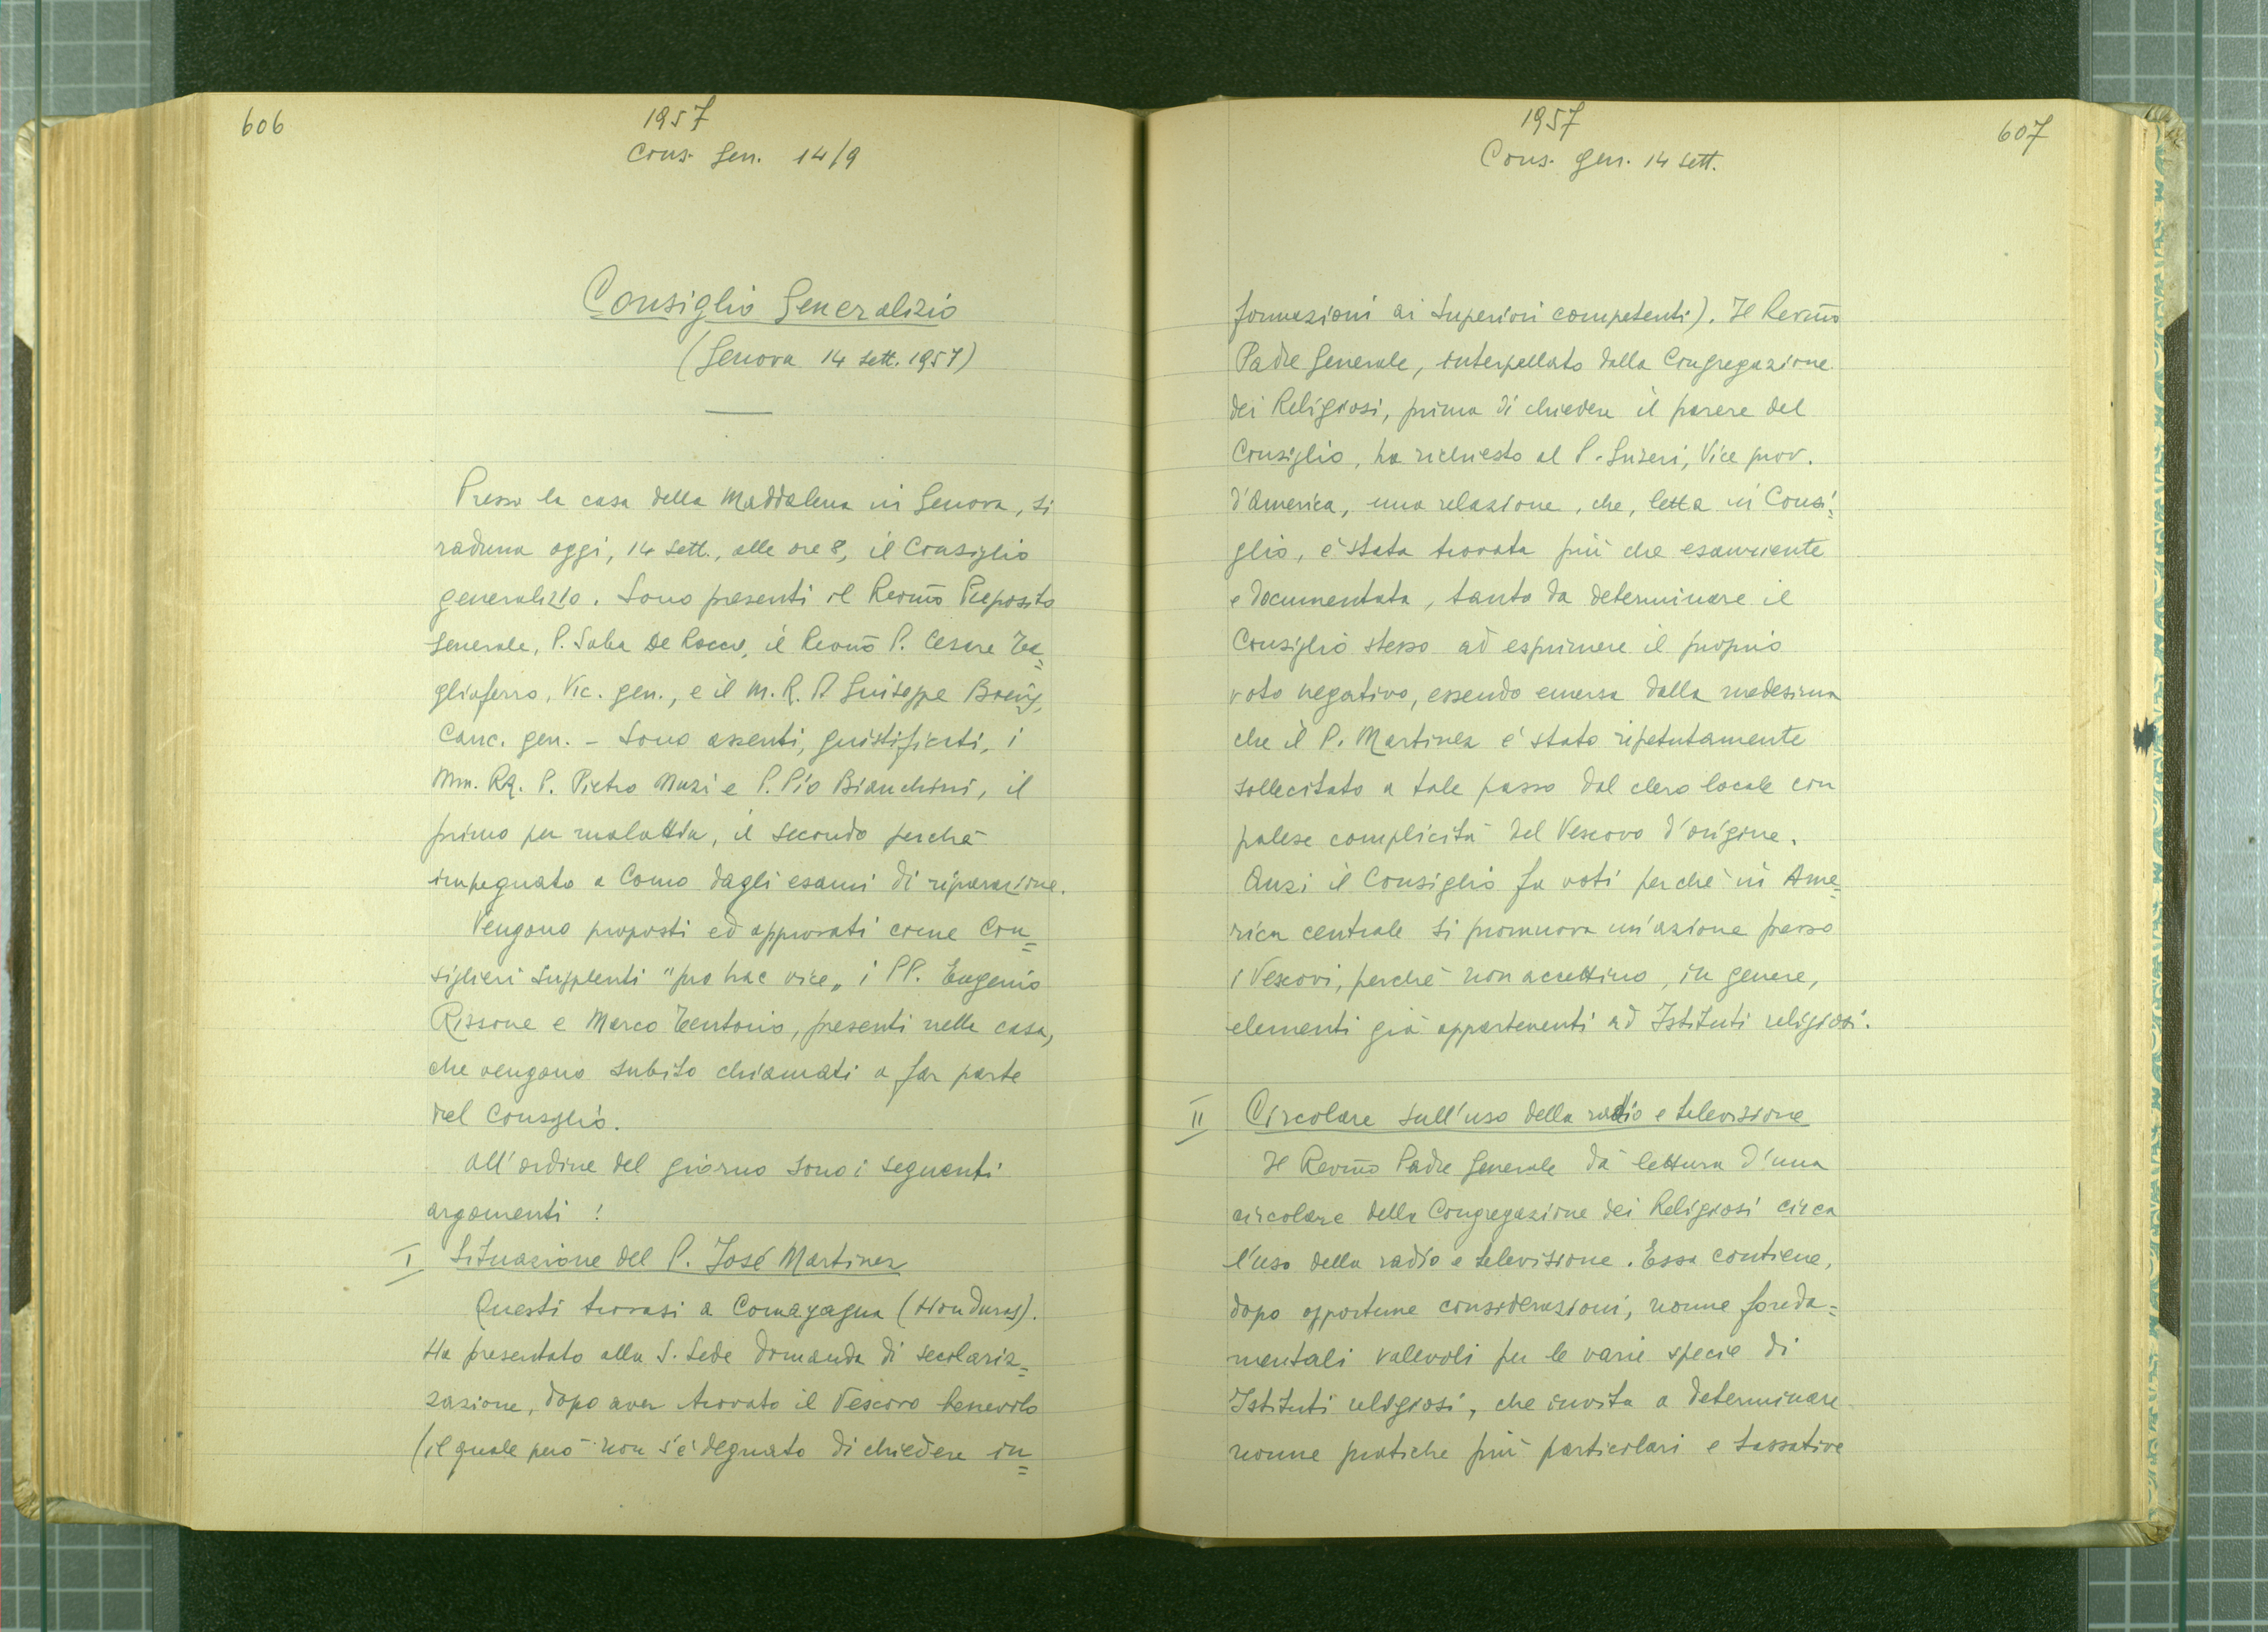 606
1957
Cons. Gen. 14/9
Consiglio Generalizio
(Genova 14 sett. 1957)
Presso la casa della Maddalena in Genova, si
raduna oggi, 14 sett., alle ore 8, il Consiglio
generalizio. Sono presenti il Revm̃o Preposito
Generale, P. Saba De Rocco, il Revm̃o P. Cesare Ta=
gliaferro, Vic. gen., e il M. R. P. Giuseppe
Canc. gen. - Sono assenti, giustificati, i
Mm. RR. P. Pietro Muzi e P. Pio Bianchini, il
primo per malattia, il secondo perchè
impegnato a Como dagli esami di riparazione.
Vengono proposti ed approvati come Con=
siglieri supplenti "pro hac vice„ i PP. Eugenio
Rissone e Marco Tentorio, presenti nella casa,
che vengono subito chiamati a far parte
del Consiglio.
All'ordine del giorno sono i seguenti
argomenti :
I Situazione del P. José Martinez
Questi trovasi a Comayagua (Honduras).
Ha presentato alla S. Sede domanda di secolariz=
zazione, dopo aver trovato il Vescovo benevolo
(il quale però non s'è degnato di chiedere in=
1957
Cons. gen. 14 sett.
607
formazioni ai Superiori competenti). Il Revm̃o
Padre Generale, interpellato dalla Congregazione
dei Religiosi, prima di chiedere il parere del
Consiglio, ha richiesto al P. Suseri, Vice prov.
d'America, una relazione, che, letta in Consi=
glio, è stata trovata più che esauriente
e documentata, tanto da determinare il
Consiglio stesso ad esprimere il proprio
voto negativo, essendo emerso dalla medesima
che il P. Martinez è stato ripetutamente
sollecitato a tale passo dal clero locale con
palese complicità del Vescovo d'origine.
Anzi il Consiglio fa voti perchè in Ame=
rica centrale si promuova un'azione presso
i Vescovi, perchè non accettino, in genere,
elementi già appartenenti ad Istituti religiosi.
II Circolare sull'uso della radio e televisione
Il Revm̃o Padre Generale dà lettura d'una
circolare della Congregazione dei Religiosi circa
l'uso della radio e televisione. Essa contiene,
dopo opportune considerazioni, norme fonda=
mentali valevoli per le varie specie di
Istituti religiosi, che invita a determinare
norme pratiche più particolari e tassative